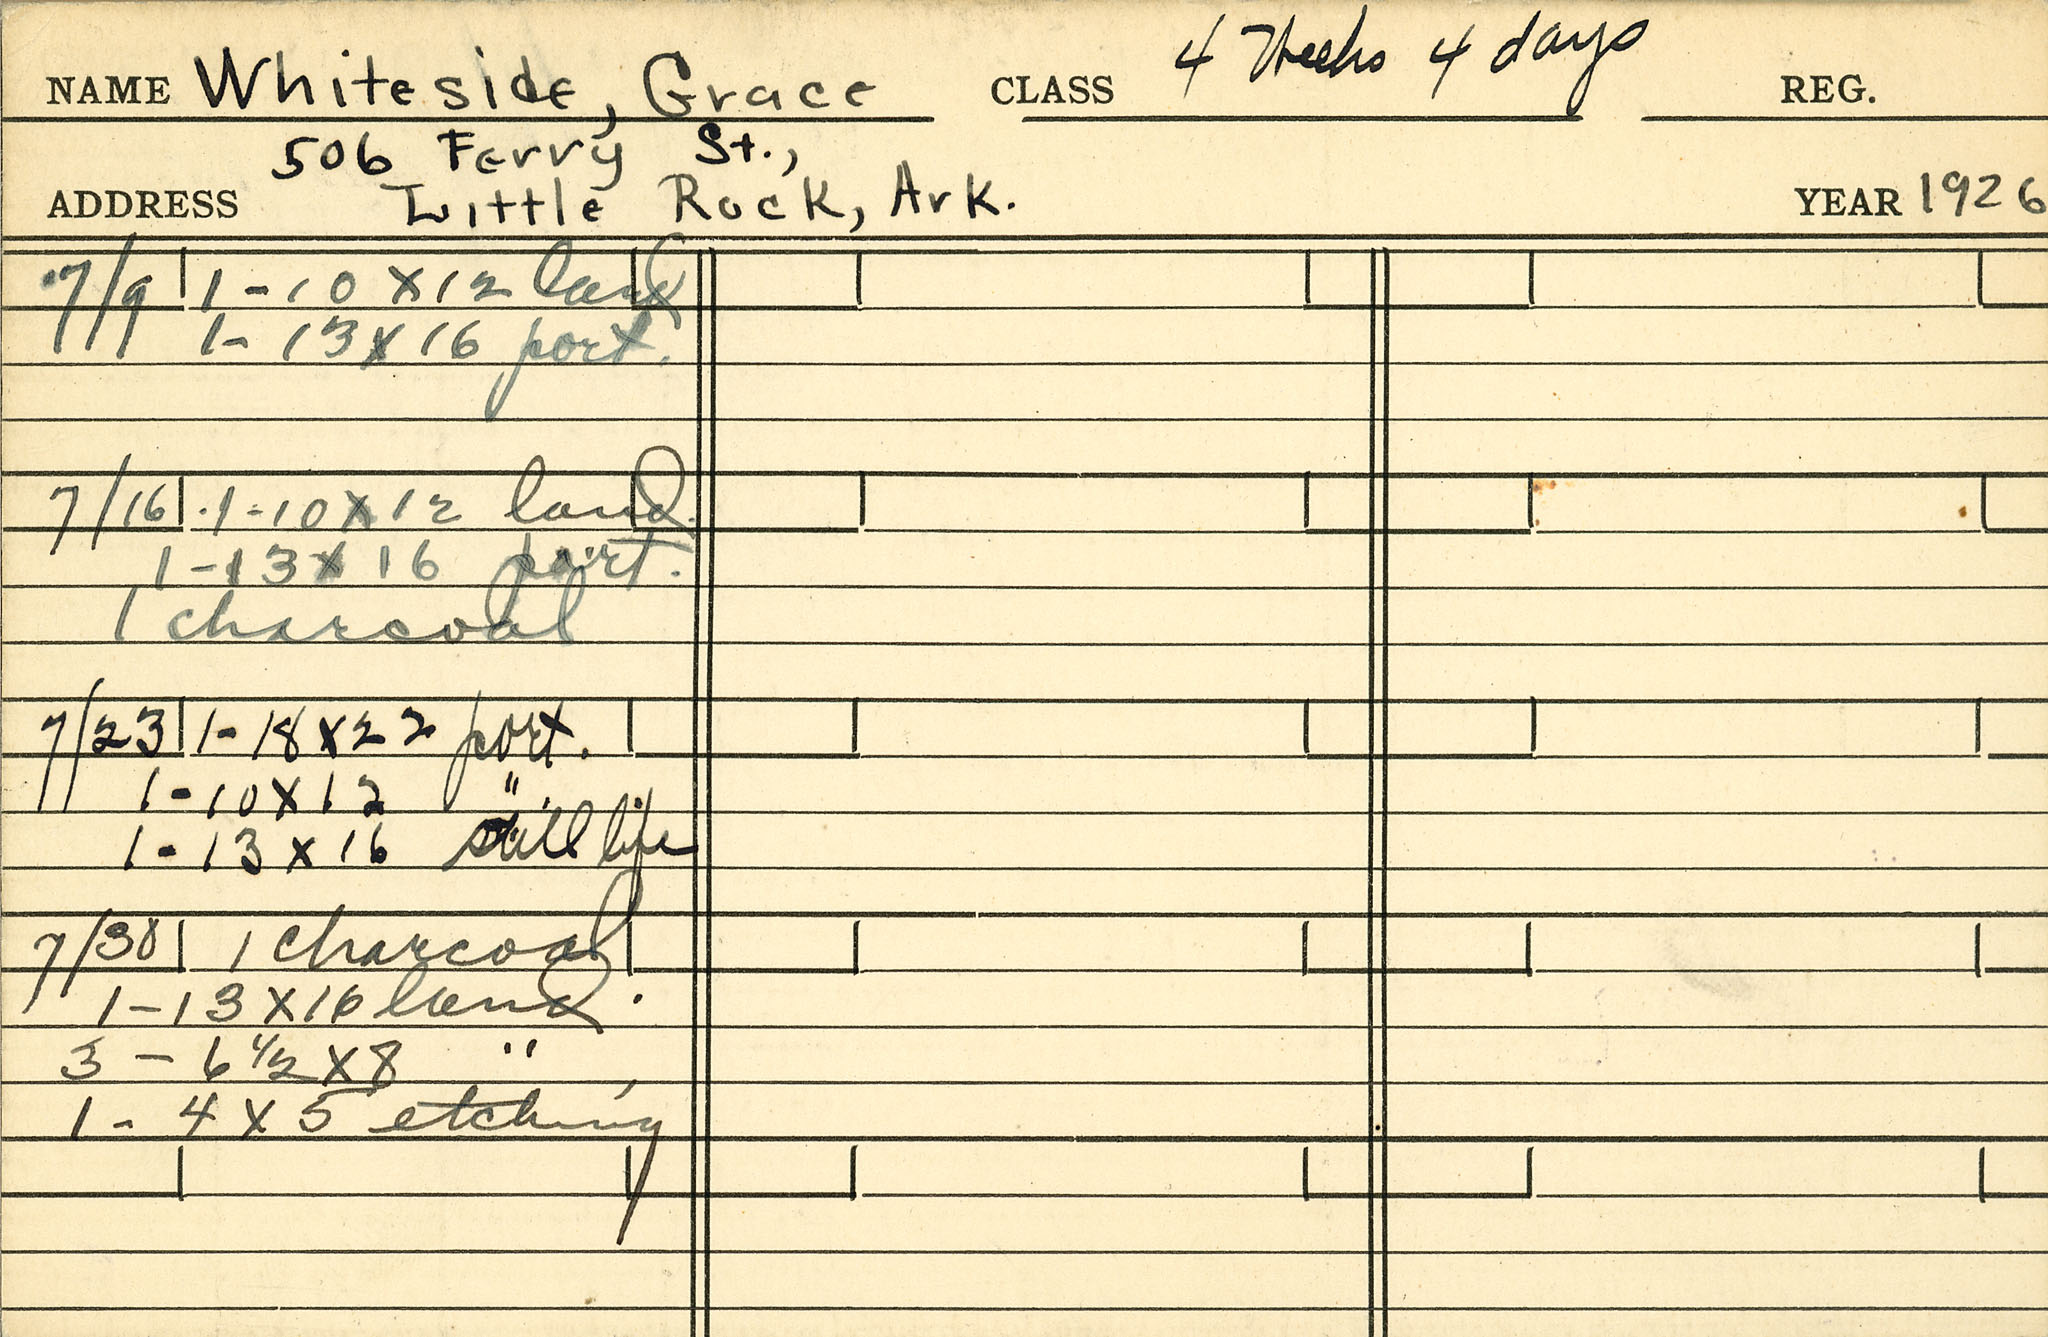 NAME Whiteside, Grace CLASS 4 Weeks 4 days REG.
506 Ferry St.,
ADDRESS Little Rock, Ark. YEAR 1926
7/9 1-10 x 12 land
1- 13 x 16 port.
7/16 1-10 x 12 land.
1-13 x 16 port.
1 charcoal
7/23 1-18 x 22 port.
1-10 x 12 "
1-13 x 16 still life
7/30 1 charcoal
1-13 x 16 land.
3 - 6 1/2 x 8 "
1- 4 x 5 etching